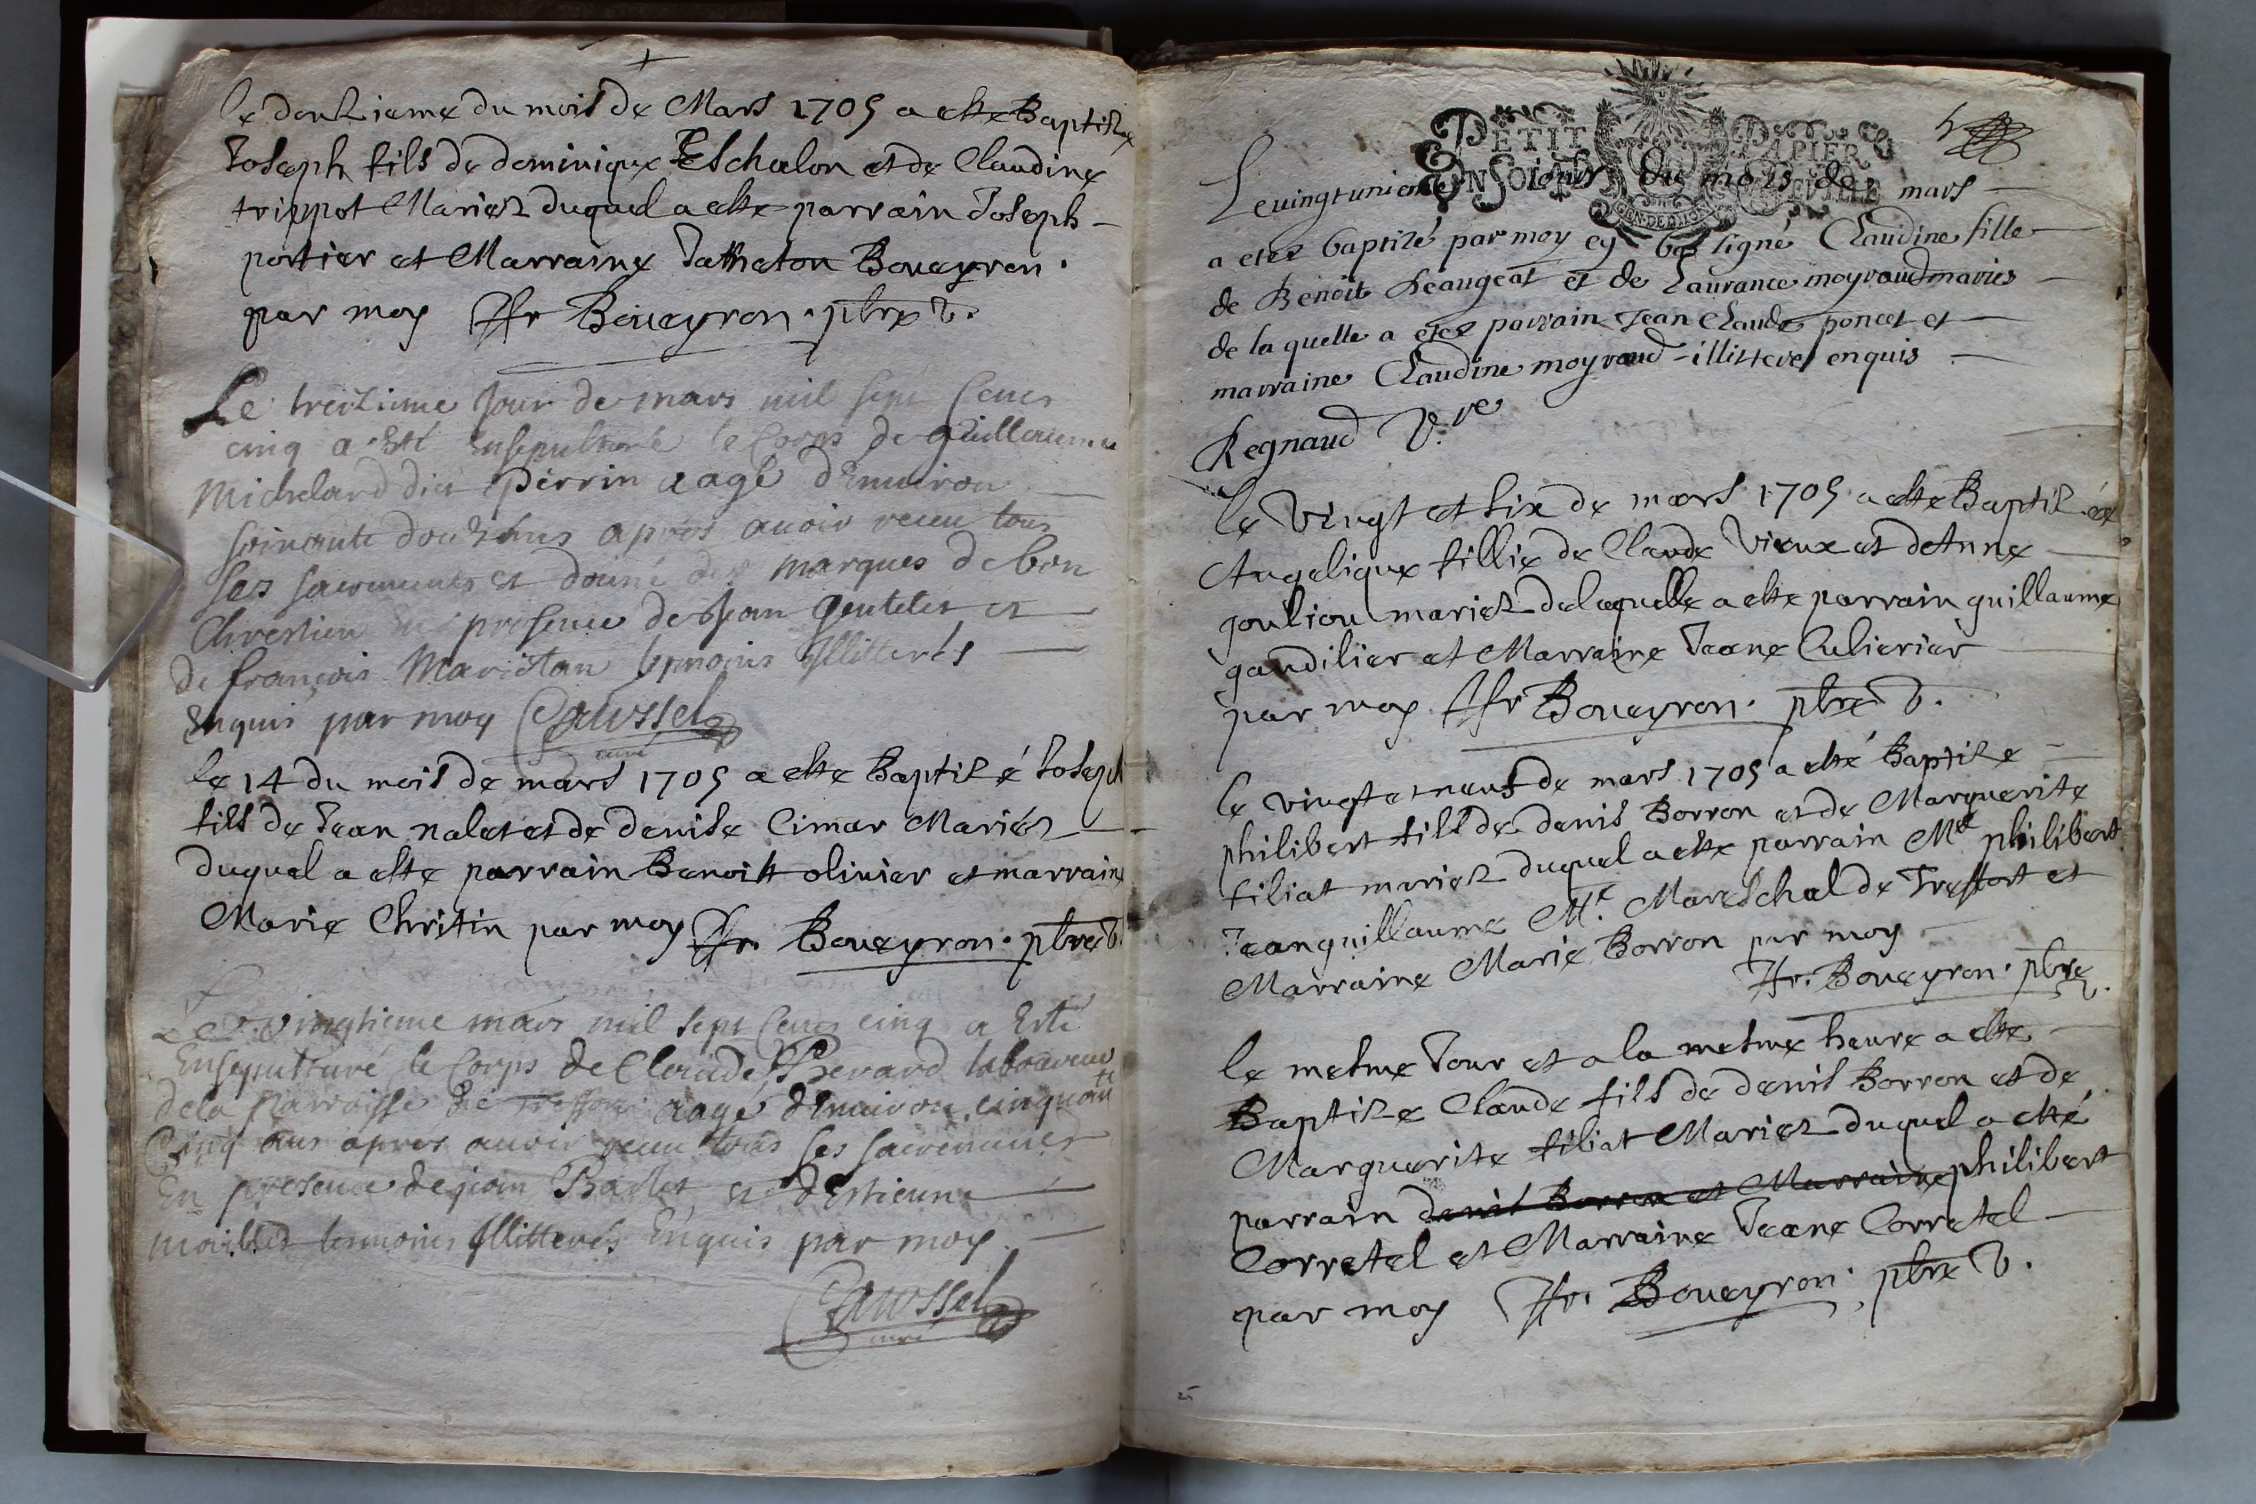 le douzieme du mois de Mars 1705 a este Baptize
Joseph fils de dominique Eschalon et de Claudine
trippot Mariez duquel a este parrain Joseph
portier et Marraine Boueyron.
par moy fr Boueyron. pbre V.
Le treizieme Jour de mars mil sept Cens
cinq a Esté Ensepulturé le Corps de Guillaume
Michelard dit Perrin aagé d'Enuiron
soixante douz ans apres auoir receu tous
ses sacremens et donné des marques de bon
Chrestien en presence de Jean et
de françois tesmoins Illitterés
Enquis par moy Caussel
curé
le 14 du mois de mars 1705 a este Baptizé Joseph
fils de Jean nalet et de denise Cimar Mariéz
duquel a este parrain Benoist oliuier et marraine
Marie Chritin par moy fr. Boueyron. pbre V.
Le Vingtieme mars mil sept Cens cinq a Esté
Ensepulturé le Corps de Claude laboureur
de la parroisse de aagé d'Enuiron cinquante
Cinq ans apres auoir receu tous ses sacremens
En presence de jean et d'Estienne
tesmoins Illitterés Enquis par moy
Caussel
curé
PETIT PAPIER
Le uingtunieme iour du mois de mars
a etez baptizé par moy cy bas signé Claudine fille
de Benoit Reangeat et de Laurance moyraud mariés
de la quelle a etez parrain Jean Claude poncet et
marraine Claudine moyraud illiteres enquis
Regnaud V.re
le vingt et six de mars 1705 a este Baptizée
Angelique fillie de Claude Vieux et de Anne
gouliou mariez de laquelle a este parrain guillaume
gandilier et Marraine Jeane Culierier
par moy fr Boueyron. pbre V.
le vingt et neuf de mars 1705 a esté Baptize
philibert fils de denis Borron et de Marguerite
filiat mariez duquel a este parrain Me philibert
Jeanguillaume Me. Mareschal de Treffort et
Marraine Marie Borron par moy
fr. Boueyron. pbre V.
le mesme Jour et a la mesme heure a este
Baptize Claude fils de denis Borron et de
Marguerite filiat Mariez duquel a esté
parrain denis Borron et Marraine philibert
Corretel et Marraine Jeane Corretel
par moy fr. Boueyron. pbre V.
25